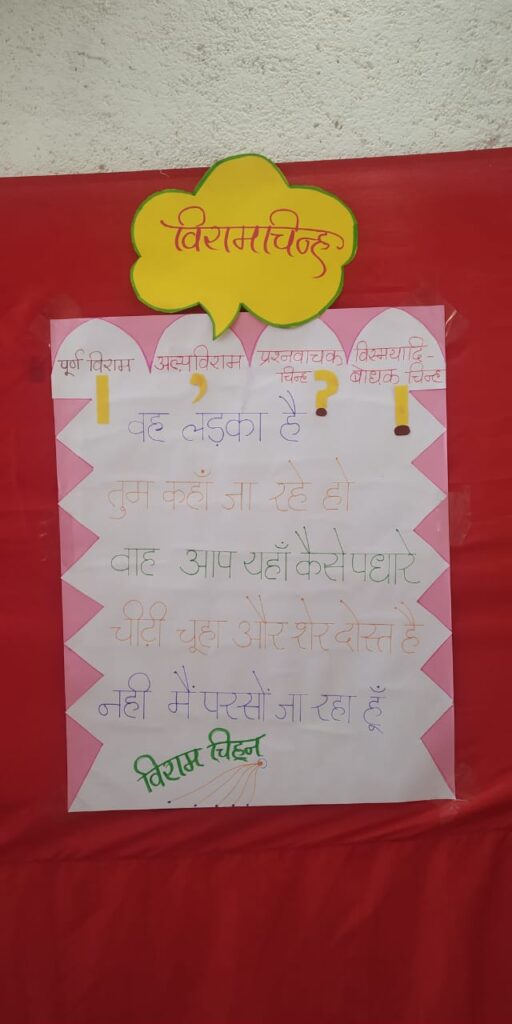 विरामचिन्ह
पूर्ण विराम अल्पविराम प्रश्नवाचक चिन्ह विस्मयादि-बोधक चिन्ह
। , ? !
वह लड़का है
तुम कहाँ जा रहे हो
वाह आप यहाँ कैसे पधारे
चींटी चूहा और शेर दोस्त है
नही मैं परसों जा रहा हूँ
विराम चिह्न